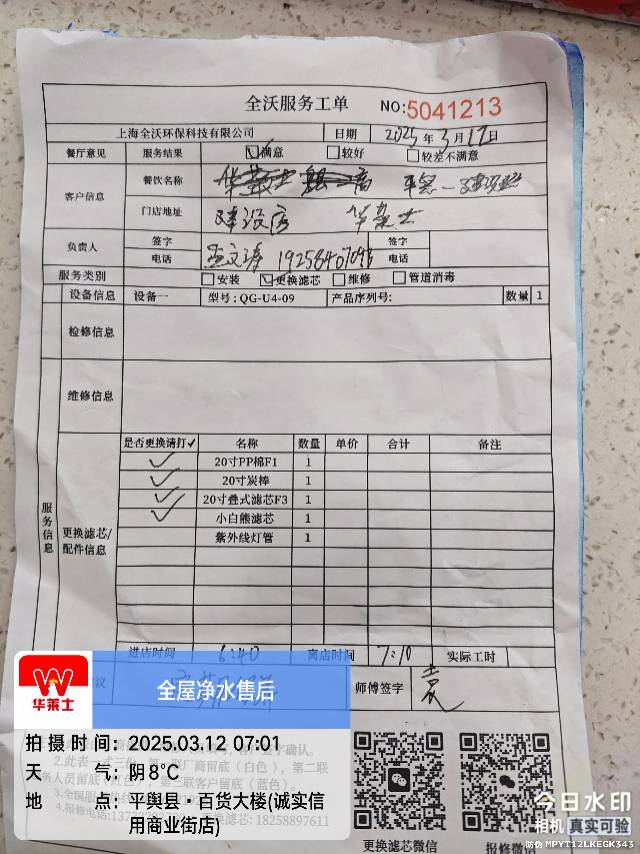 全沃服务工单 NO:5041213
上海全沃环保科技有限公司 日期 2025年3月12日
餐厅意见 服务结果 ☑满意 □较好 □较差不满意
客户信息 餐饮名称 平舆一建设路
门店地址 建设店 华莱士
负责人 签字 签字
电话 电话
服务类别 □安装 ☑更换滤芯 □维修 □管道消毒
设备信息 设备一 型号:QG-U4-09 产品序列号: 数量 1
检修信息
维修信息
服务信息
更换滤芯/配件信息
是否更换请打✓ 名称 数量 单价 合计 备注
✓ 20寸PP棉F1 1
✓ 20寸炭棒 1
✓ 20寸叠式滤芯F3 1
✓ 小白熊滤芯 1
紫外线灯管 1
进店时间 6:40 离店时间 7:10 实际工时
议 师傅签字 袁
华莱士
全屋净水售后
拍摄时间：2025.03.12 07:01
天气：阴 8℃
地点：平舆县·百货大楼(诚实信
用商业街店)
签字确认。
2.此表一式三份，第一联厂商留底（白色），第二联
务人员留底（红色），第三联客户留底（蓝色）。
18258897611
更换滤芯微信 报修微信
今日水印
相机 真实可验
防伪 MPYT12LKEGK343